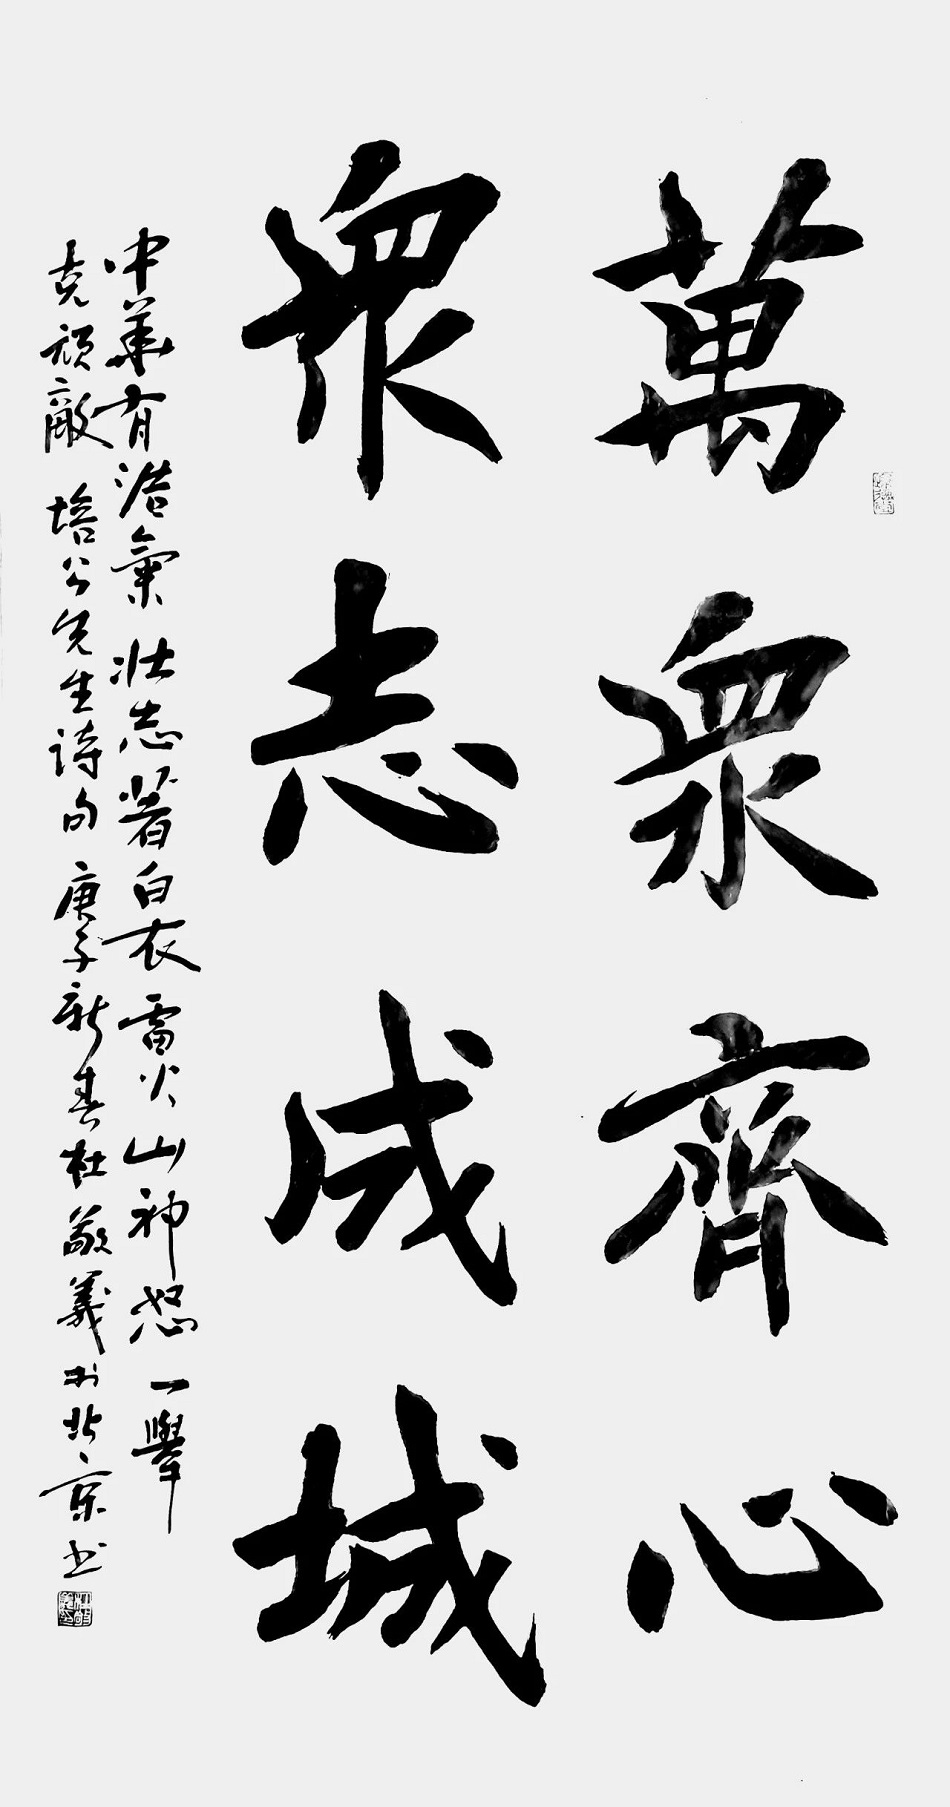 萬眾齊心
眾志成城
中華有浩氣壯志著白衣雷火山神怒一舉
克頑敵 培公先生詩句庚子新春杜敬義於北京书